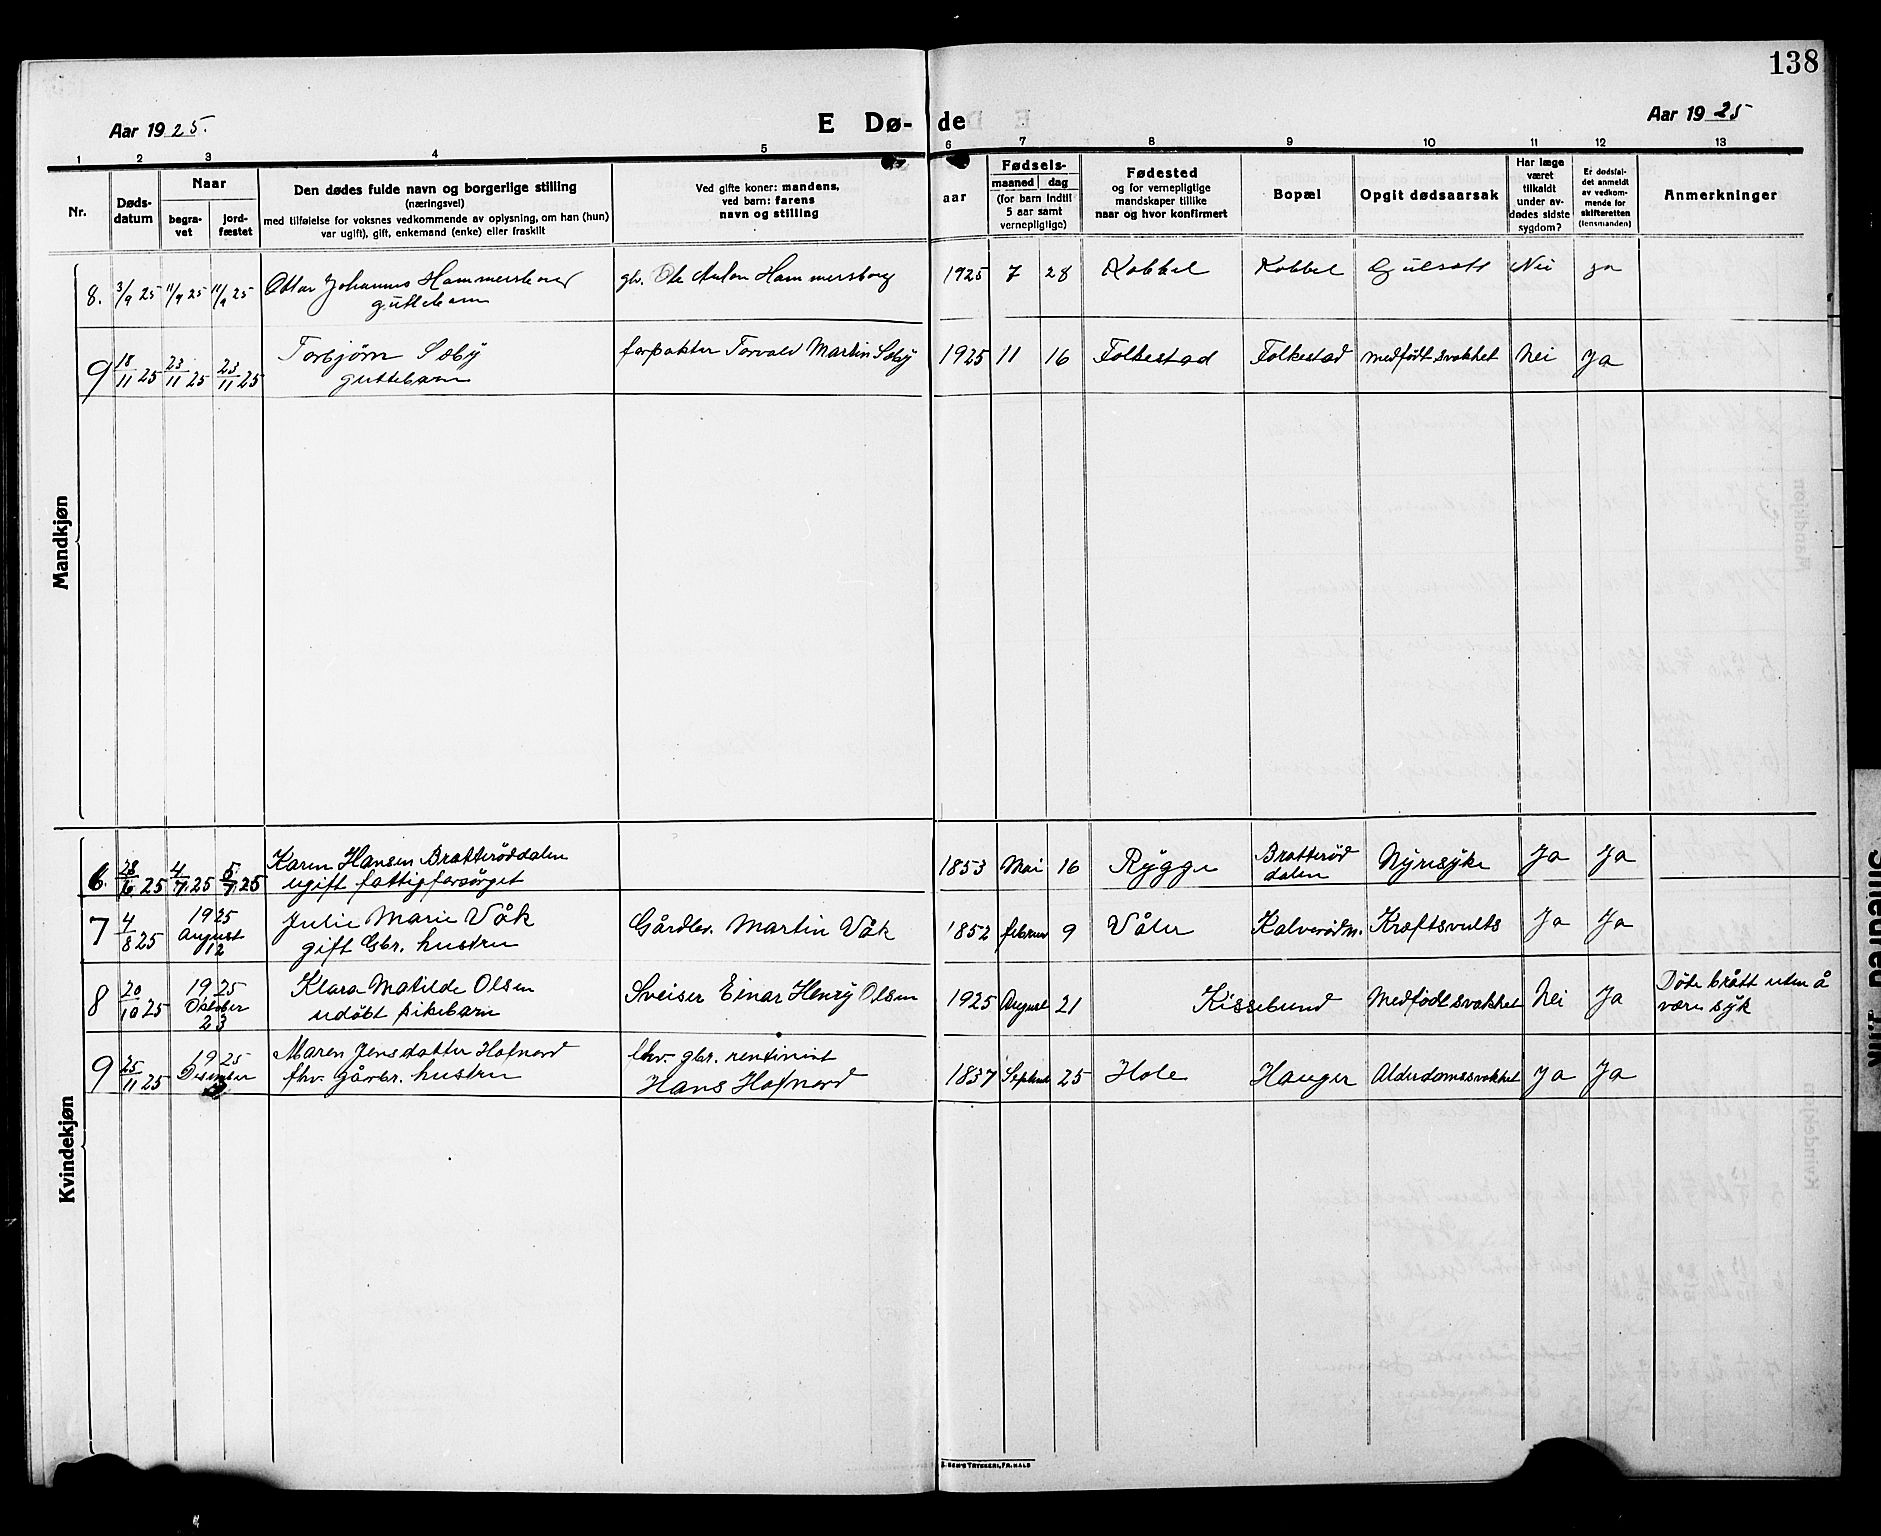 138
Aar 1925.
E Dø-
de
Aar 1925
1 2 3 4 5 6 7 8 9 10 11 12 13
Nr.
Døds-
datum
Naar
begra-
vet
jord-
fæstet
Den dødes fulde navn og borgerlige stilling
(næringsvei)
med tilføielse for voksnes vedkommende av oplysning, om han (hun)
var ugift), gift, enkemand (enke) eller fraskilt
Ved gifte koner: mandens,
ved barn: farens
navn og stilling
aar
Fødsels-
maaned dag
(for barn indtil
5 aar samt
vernepligtige)
Fødested
og for vernepligtige
mandskaper tillike
naar og hvor konfirmert
Bopæl
Opgit dødsaarsak
Har læge
været
tilkaldt
under av-
dødes sidste
sygdom?
Er dødsfal-
det anmeldt
av vedkom-
mende for
skifteretten
(lensmanden)
Anmerkninger
Mandkjøn
8. 3/9 25 11/9 25 11/9 25 Ottar Johannes Hammersborg gbr. Ole Anton Hammersborg 1925 7 28 Kabbel Kabbel Gulsott Nei ja
guttebarn
9 18/11 25 23/11 25 23/11 25 Torbjørn Sæby forpakter Torvald Martin Sæby 1925 11 16 Folkestad Folkestad medfødt svakhet Nei Ja
guttebarn
Kvindekjøn
6. 28/6 25 4/7 25 5/7 25 Karen Hansen Bratterøddalen 1853 Mai 16 Rygge Bratterød Nyresyke Ja Ja
ugift fattigforsørget dalen
7 4/8 25 1925 Julie Marie Våk Gårdbr. Martin Våk 1852 februar 9 Våler Kalverødm. Kræftsvulst Ja Ja
August gift Gbr. hustru
12
8 20/10 25 1925 Klara Matilde Olsen Sveiser Einar Henry Olsen 1925 August 21 Kissebund Medfødt svakhet Nei Ja Døde brått uten å
Oktober udøbt pikebarn være syk
23
9 25/11 25 1925 Maren Jensdatter Hofnord fhv. gbr. rentinist 1837 Septemb 25 Hole Hauger Alderdomssvakhet Ja Ja
Desember fhv. gårbr. hustru Hans Hofnord
TRYKKERI, FR.HALD